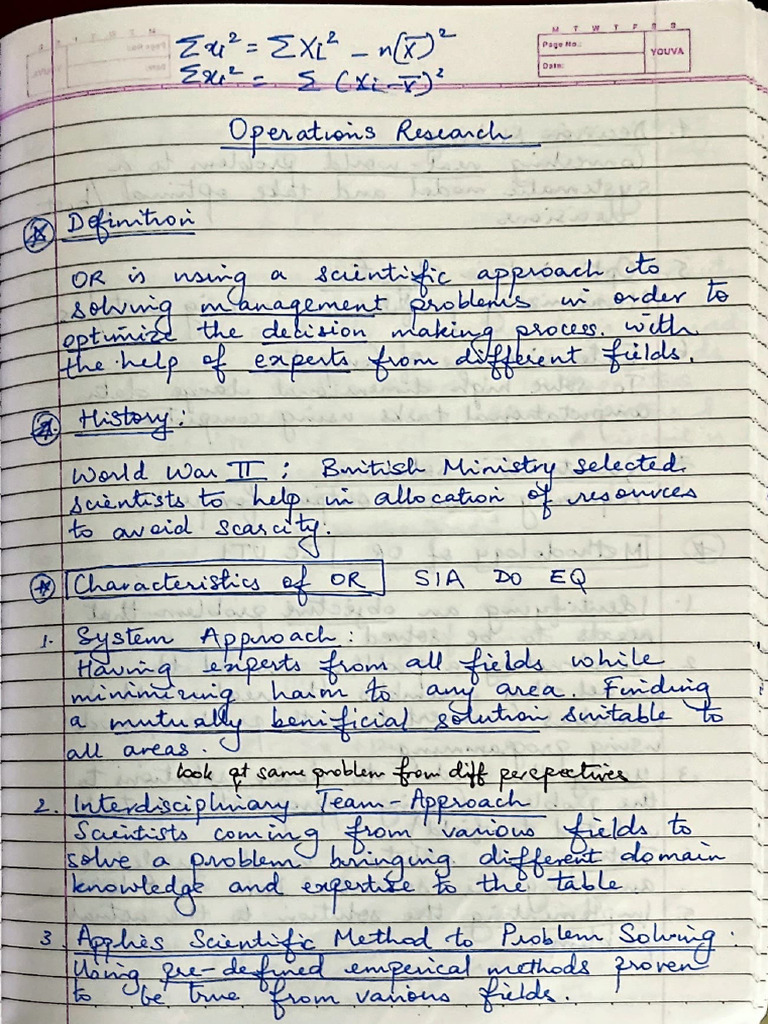 Σxi² = ΣXi² – n(X̄)²
Σxi² = Σ (Xi – X̄)²
M T W T F S S
Page No.:
Date:
YOUVA
Operations Research
Definition
OR is using a scientific approach to
solving management problems in order to
optimize the decision making process with
the help of experts from different fields.
History:
World War II : British Ministry selected
scientists to help in allocation of resources
to avoid scarcity.
Characteristics of OR SIA DO EQ
1. System Approach :
Having experts from all fields while
minimizing harm to any area. Finding
a mutually benificial solution suitable to
all areas.
look at same problem from diff perspectives
2. Interdisciplinary Team-Approach
Scientists coming from various fields to
solve a problem bringing different domain
knowledge and expertise to the table
3. Applies Scientific Method to Problem Solving :
Using pre-defined emperical methods proven
to be true from various fields.